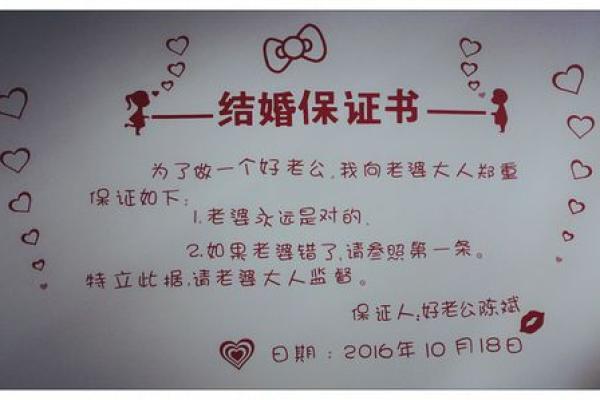 结婚保证书
为了做一个好老公,我向老婆大人郑重
保证如下:
1.老婆永远是对的.
2.如果老婆错了,请参照第一条。
特立此据,请老婆大人监督。
保证人:好老公陈斌
日期:2016年10月18日